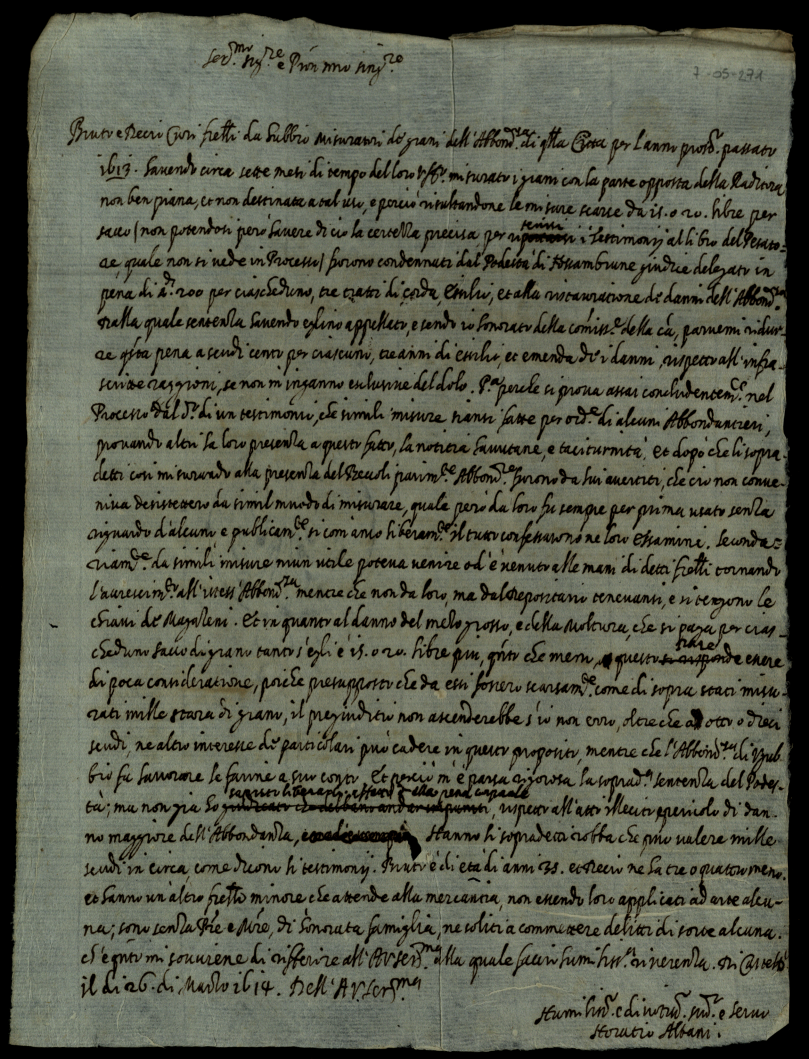 Ser.mo Sig.re e Pron mio sing.re
7-05-271
Bruto e Decio Cjori fr̃elli da Gubbio misuratori de' grani dell'Abbond.za di q̃lla Città per l'anno pross.o passato
1613. havendo circa sette mesi di tempo del loro uff.o misurato i grani con la parte opposta della Raditora
non ben piana, et non destinata a tal uso, e perciò risultandone le misure scarse da 15. o 20. libre per
sacco / non potendosi però havere di ciò la certezza precisa per i testimonij al libro del Pesato=
re, quale non si vede in Processo / furono condennati dal Podestà di Fossambrune giudice delegato in
pena di 200 per ciascheduno, tre tratti di corda, Essilio, et alla ristauratione de' danni dell'Abbond.za
Dalla quale sentenza havendo eglino appellato, e sendo io honorato della com̃iss.e della cã, parvemi ridur=
re q̃sta pena a scudi cento per ciascuno, tre anni di essilio, et emenda de' i danni, rispetto all'infra=
scritte raggioni, se non m'inganno esclusive del dolo. P.a perche si prova assai concludentem.te nel
Processo dal d.o di un testimonio, che simili misure siansi fatte per ord.e di alcuni Abbondantieri,
provando altri la loro presenza a questo fatto, la notitia havutane, e taciturnità, et dopò che li sopra=
detti così misurando alla presenza del Beccoli parim.te Abbond.re furono da lui avertiti, che ciò non conve=
niva desistettero da simil modo di misurare, quale però da loro fu sempre per prima usato senza
riguardo d'alcuno e publicam.te si com'anco liberam.te il tutto confessarono ne' loro essamini. Seconda=
riam.te da simili misure niun utile poteva venire od' è venuto alle mani di detti fr̃elli tornando
l'accrescim.to all'istess'Abbond.za mentre che non da loro, ma dal Depositario tenevansi, e si tengono le
chiavi de' Magazeni. Et in quanto al danno del mezo grosso, e della Moltura, che si paga per cias=
cheduno sacco di grano tanto s'egli è 15. o 20. libre più, q̃nto che meno, questo pare essere
di poca consideratione, poiche presupposto che da essi fossero scarsam.te come di sopra stati misu=
rati mille stara di grano, il pregiuditio non ascenderebbe s'io non erro, oltre che ad otto o dieci
scudi, ne altro interesse de' particolari può cadere in questo proposito, mentre che l'Abbond.za di Gub=
bio fa lavorare le farine a suo conto. Et perciò m'è parsa rigorosa la soprad.a sentenza del Podes=
tà; ma non già ho, rispetto all'atto illecito e pericolo di dan=
no maggiore dell'Abbondanza, Hanno li sopradetti robba che può valere mille
scudi in circa, come dicono li testimonij. Bruto è di età di anni 35. et Decio ne ha tre o quattro meno.
et hanno un'altro fr̃ello minore che attende alla mercanzia, non essendo loro applicati ad arte alcu=
na; sono senza P̃re e M̃re, di honorata famiglia, ne soliti a commettere delitti di sorte alcuna.
Ch'è q̃nto mi souviene di rifferire all'A.V. Ser.ma alla quale faccio humiliss.a riverenza. Di Castello
il dì 26. di Marzo 1614. Dell'A.V. Ser.ma
Humiliss.o e divotiss.o sud.o e servo
Horatio Albani.